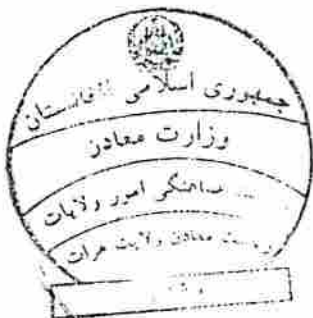 جمهوری اسلامی افغانستان
وزارت معادن
هماهنگی امور ولایات
ریاست معادن ولایت هرات